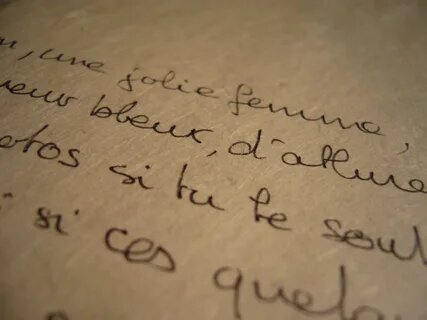 , une jolie femme,
bleux, d'allure
si tu te soul
si ces quelqu